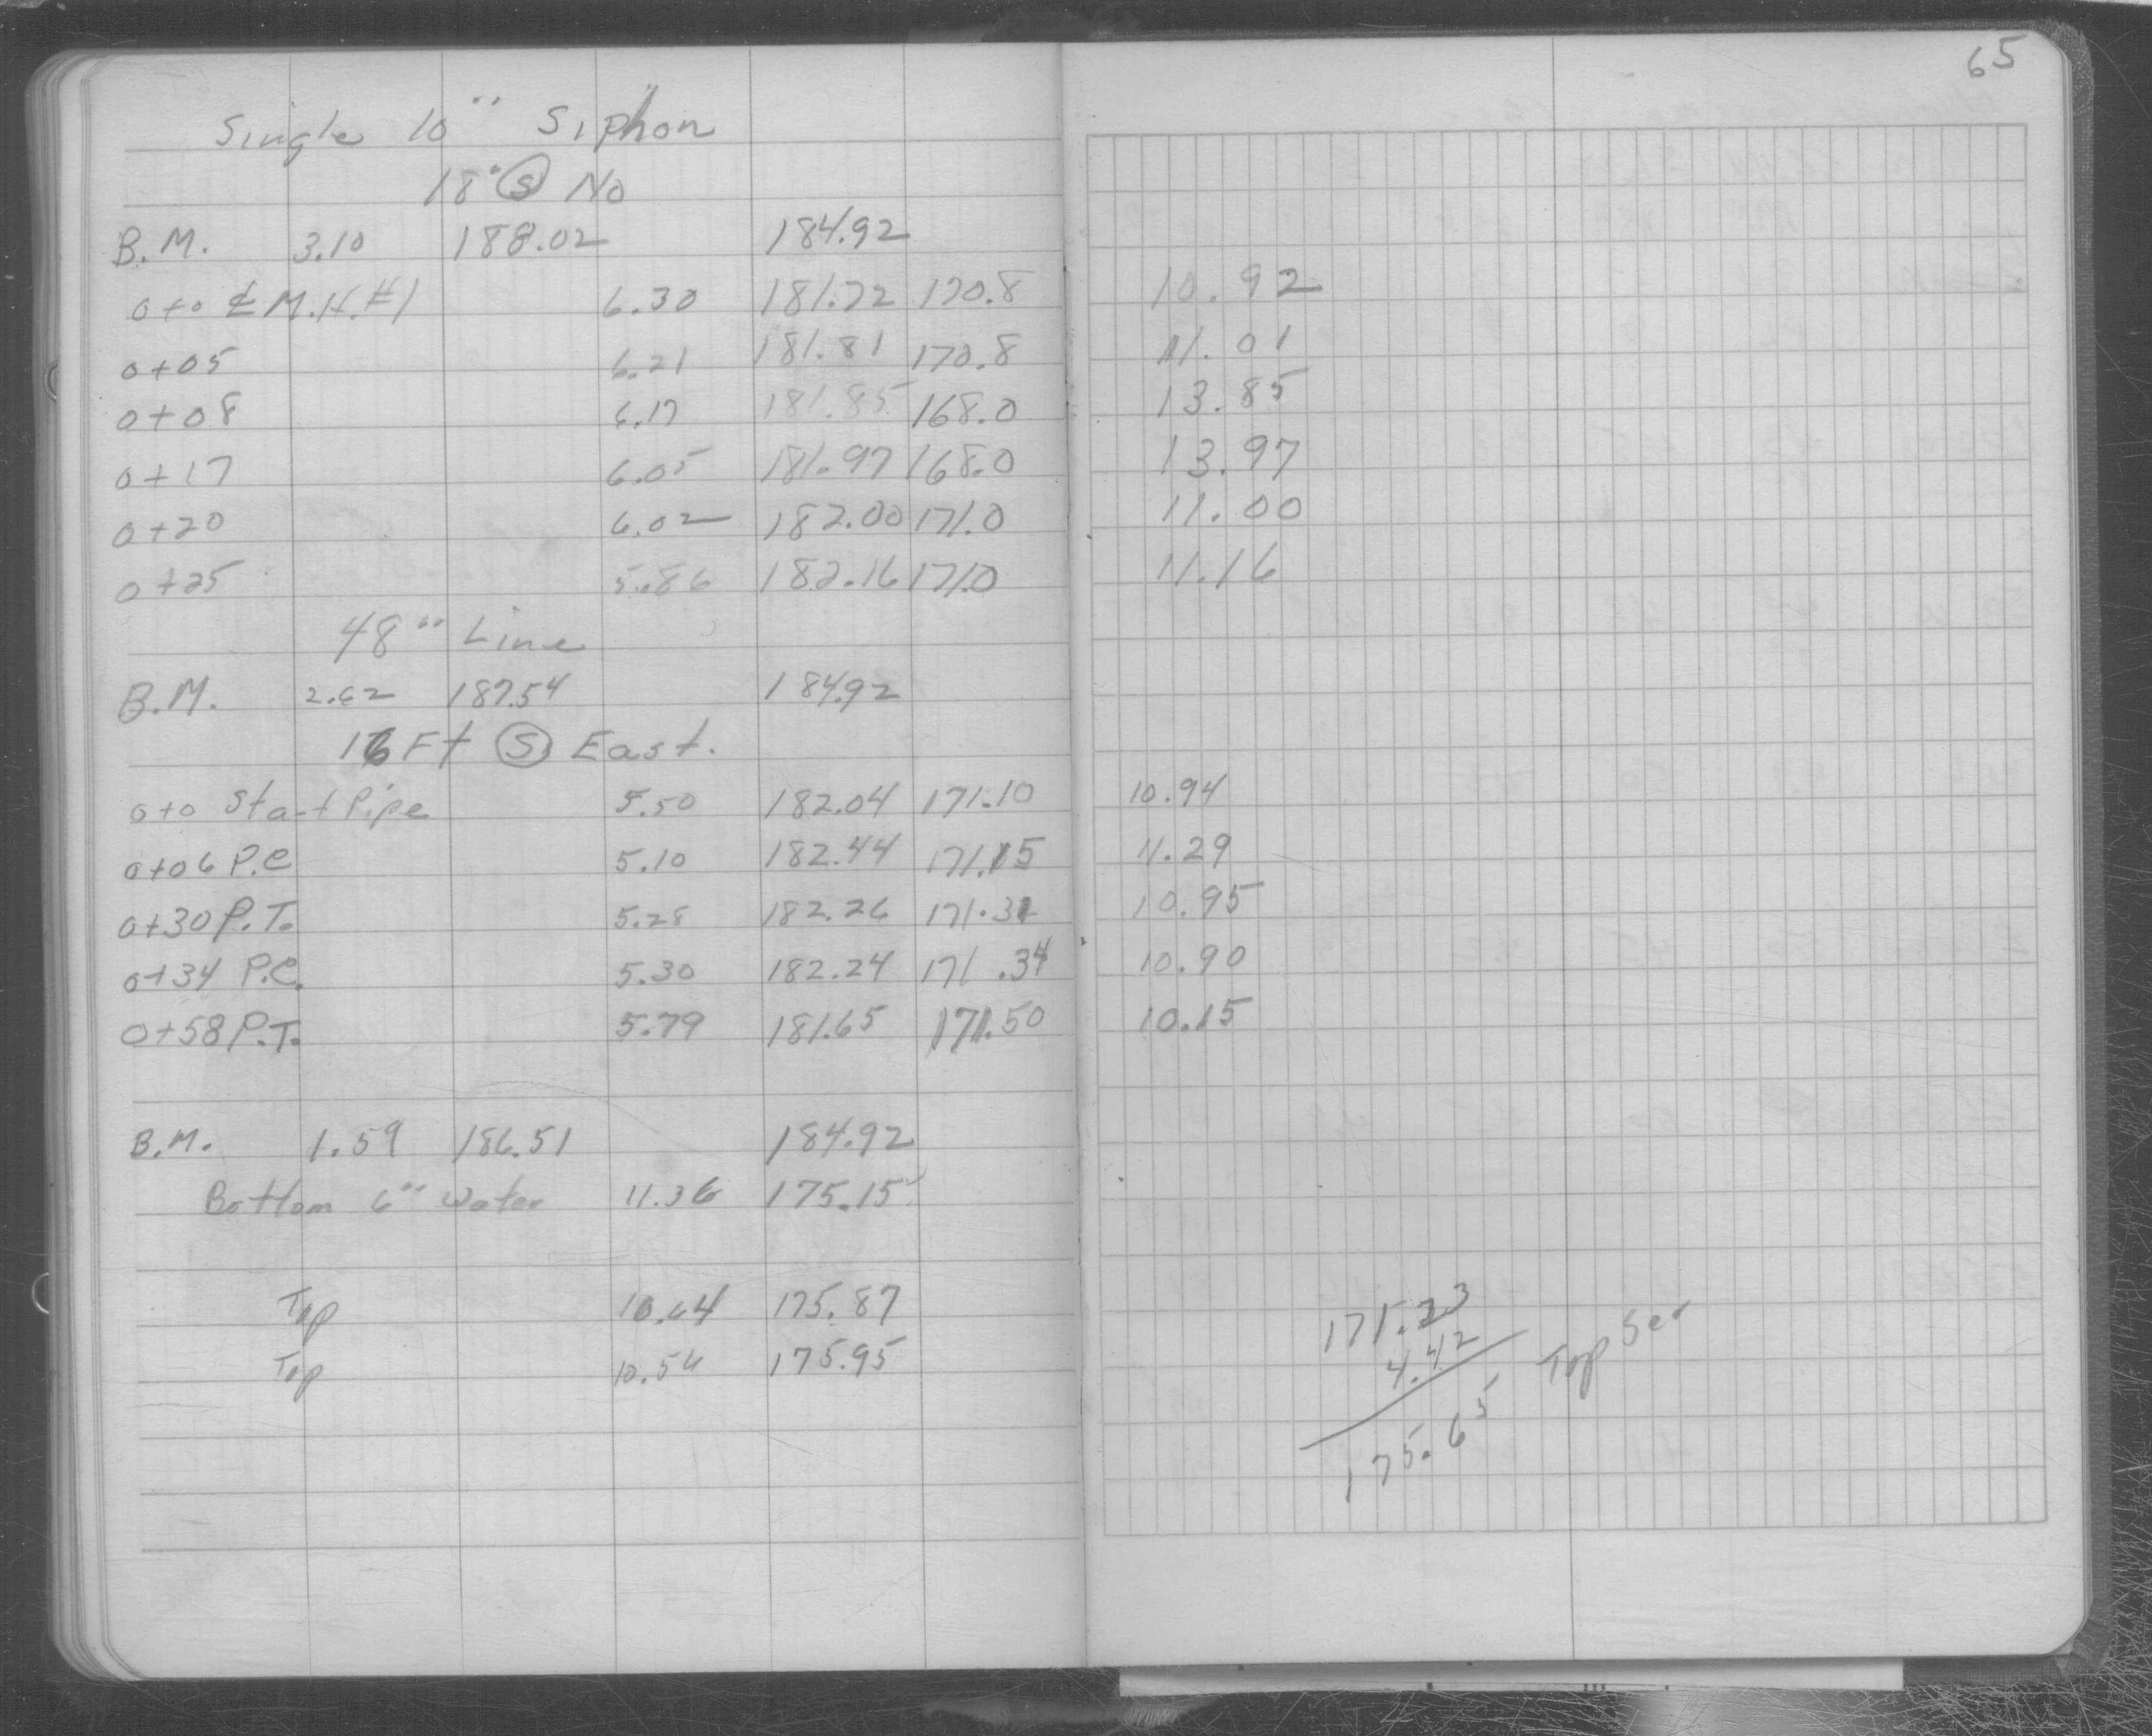 65
Single 10" Siphon
18" Ⓢ No
B.M. 3.10 188.02 184.92
0+0 ℄ M.H.#1 6.30 181.72 170.8 10.92
0+05 6.21 181.81 170.8 11.01
0+08 6.17 181.85 168.0 13.85
0+17 6.05 181.97 168.0 13.97
0+20 6.02 182.00 171.0 11.00
0+25 5.86 182.16 171.0 11.16
48" Line
B.M. 2.62 187.54 184.92
16 Ft Ⓢ East.
0+0 Start Pipe 5.50 182.04 171.10 10.94
0+06 P.C 5.10 182.44 171.15 11.29
0+30 P.T. 5.28 182.26 171.31 10.95
0+34 P.C. 5.30 182.24 171.34 10.90
0+58 P.T. 5.79 181.65 171.50 10.15
B.M. 1.59 186.51 184.92
Bottom 6" Water 11.36 175.15
Top 10.64 175.87
Top 10.56 175.95
171.23
4.42
175.65 Top Ser